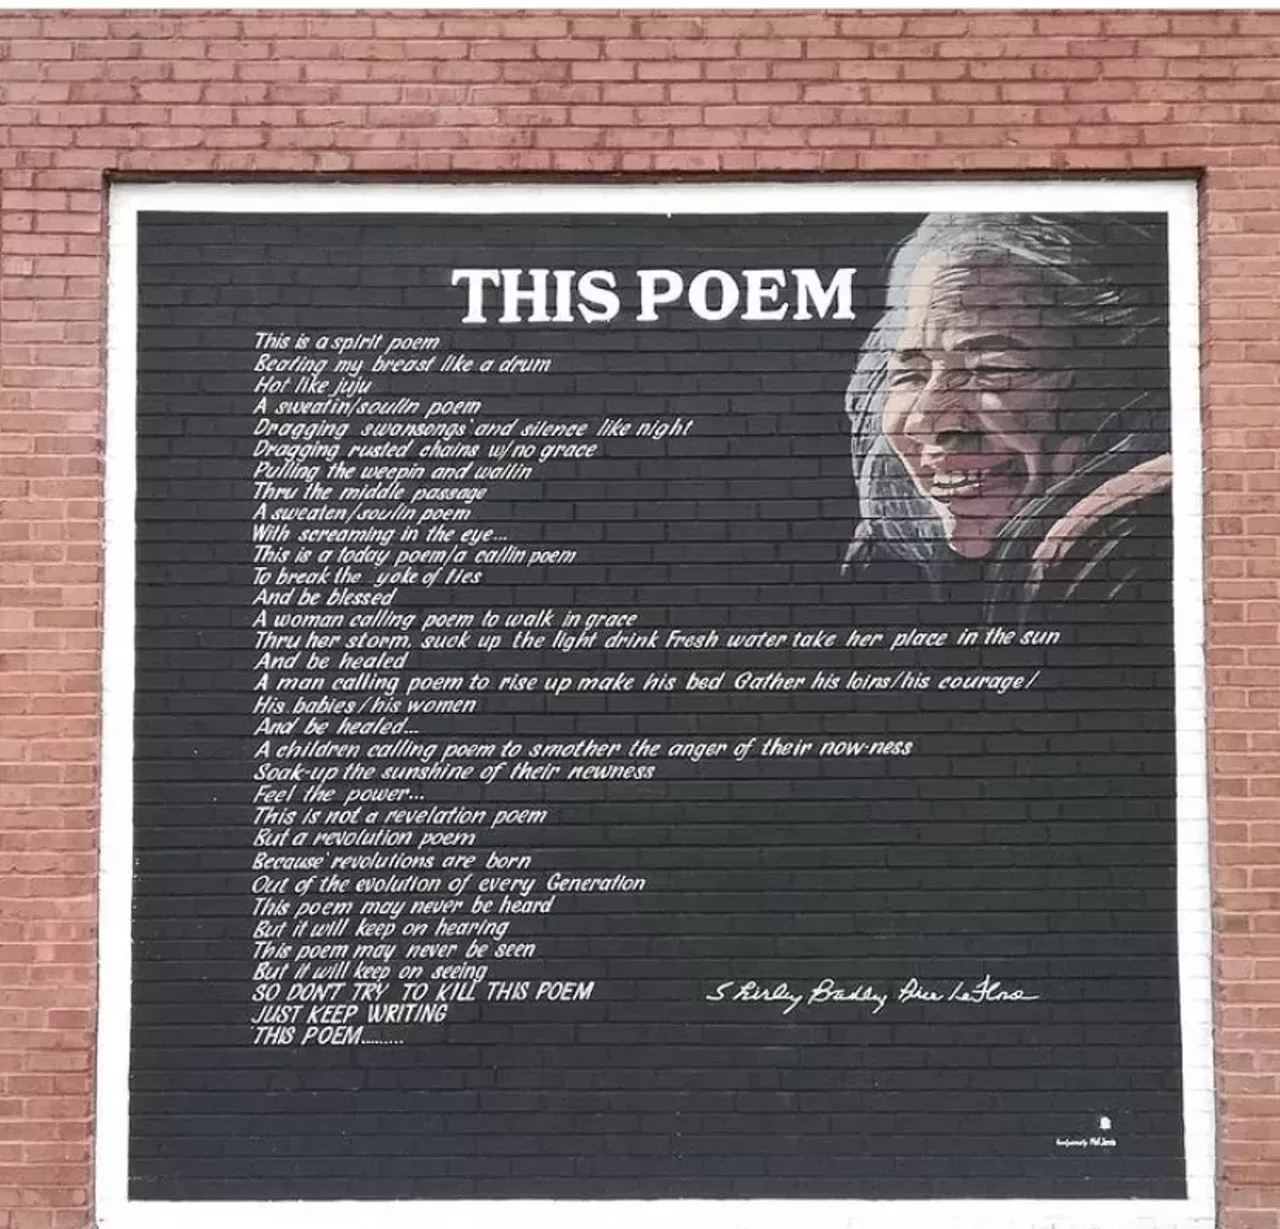 THIS POEM
This is a spirit poem
Beating my breast like a drum
Hot like juju
A sweatin/soulin poem
Dragging swansongs and silence like night
Dragging rusted chains w/no grace
Pulling the weepin and wailin
Thru the middle passage
A sweaten/soulin poem
With screaming in the eye...
This is a today poem/a callin poem
To break the yoke of lies
And be blessed
A woman calling poem to walk in grace
Thru her storm, suck up the light drink Fresh water take her place in the sun
And be healed
A man calling poem to rise up make his bed Gather his loins/his courage/
His babies/his women
And be healed...
A children calling poem to smother the anger of their now-ness
Soak-up the sunshine of their newness
Feel the power...
This is not a revelation poem
But a revolution poem
Because revolutions are born
Out of the evolution of every Generation
This poem may never be heard
But it will keep on hearing
This poem may never be seen
But it will keep on seeing
SO DON'T TRY TO KILL THIS POEM
Shirley Bradley Price LeFlore
JUST KEEP WRITING
THIS POEM.........